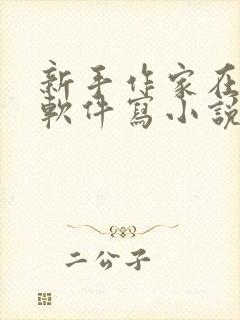 新手作家在
軟件寫小說
二公子